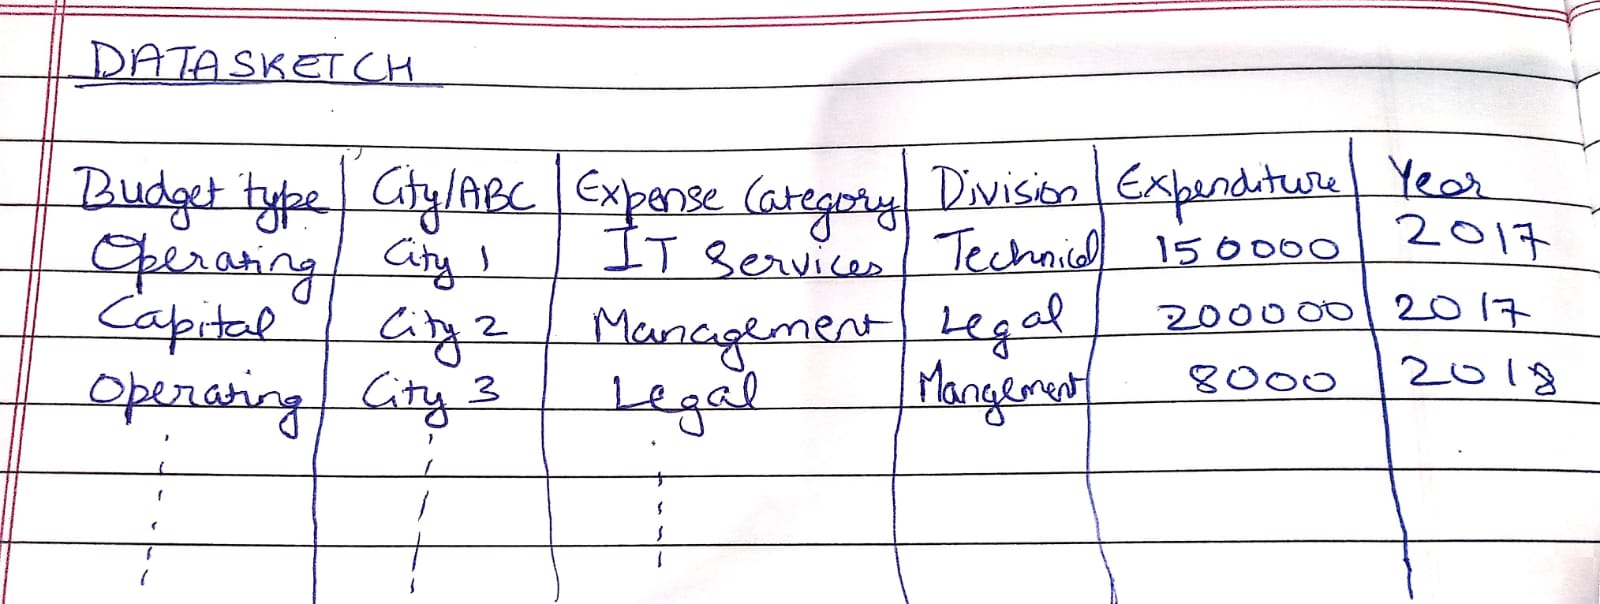 DATASKETCH
Budget type City/ABC Expense Category Division Expenditure Year
Operating City 1 IT Services Technical 150000 2017
Capital City 2 Management Legal 200000 2017
Operating City 3 Legal Mangement 8000 2018